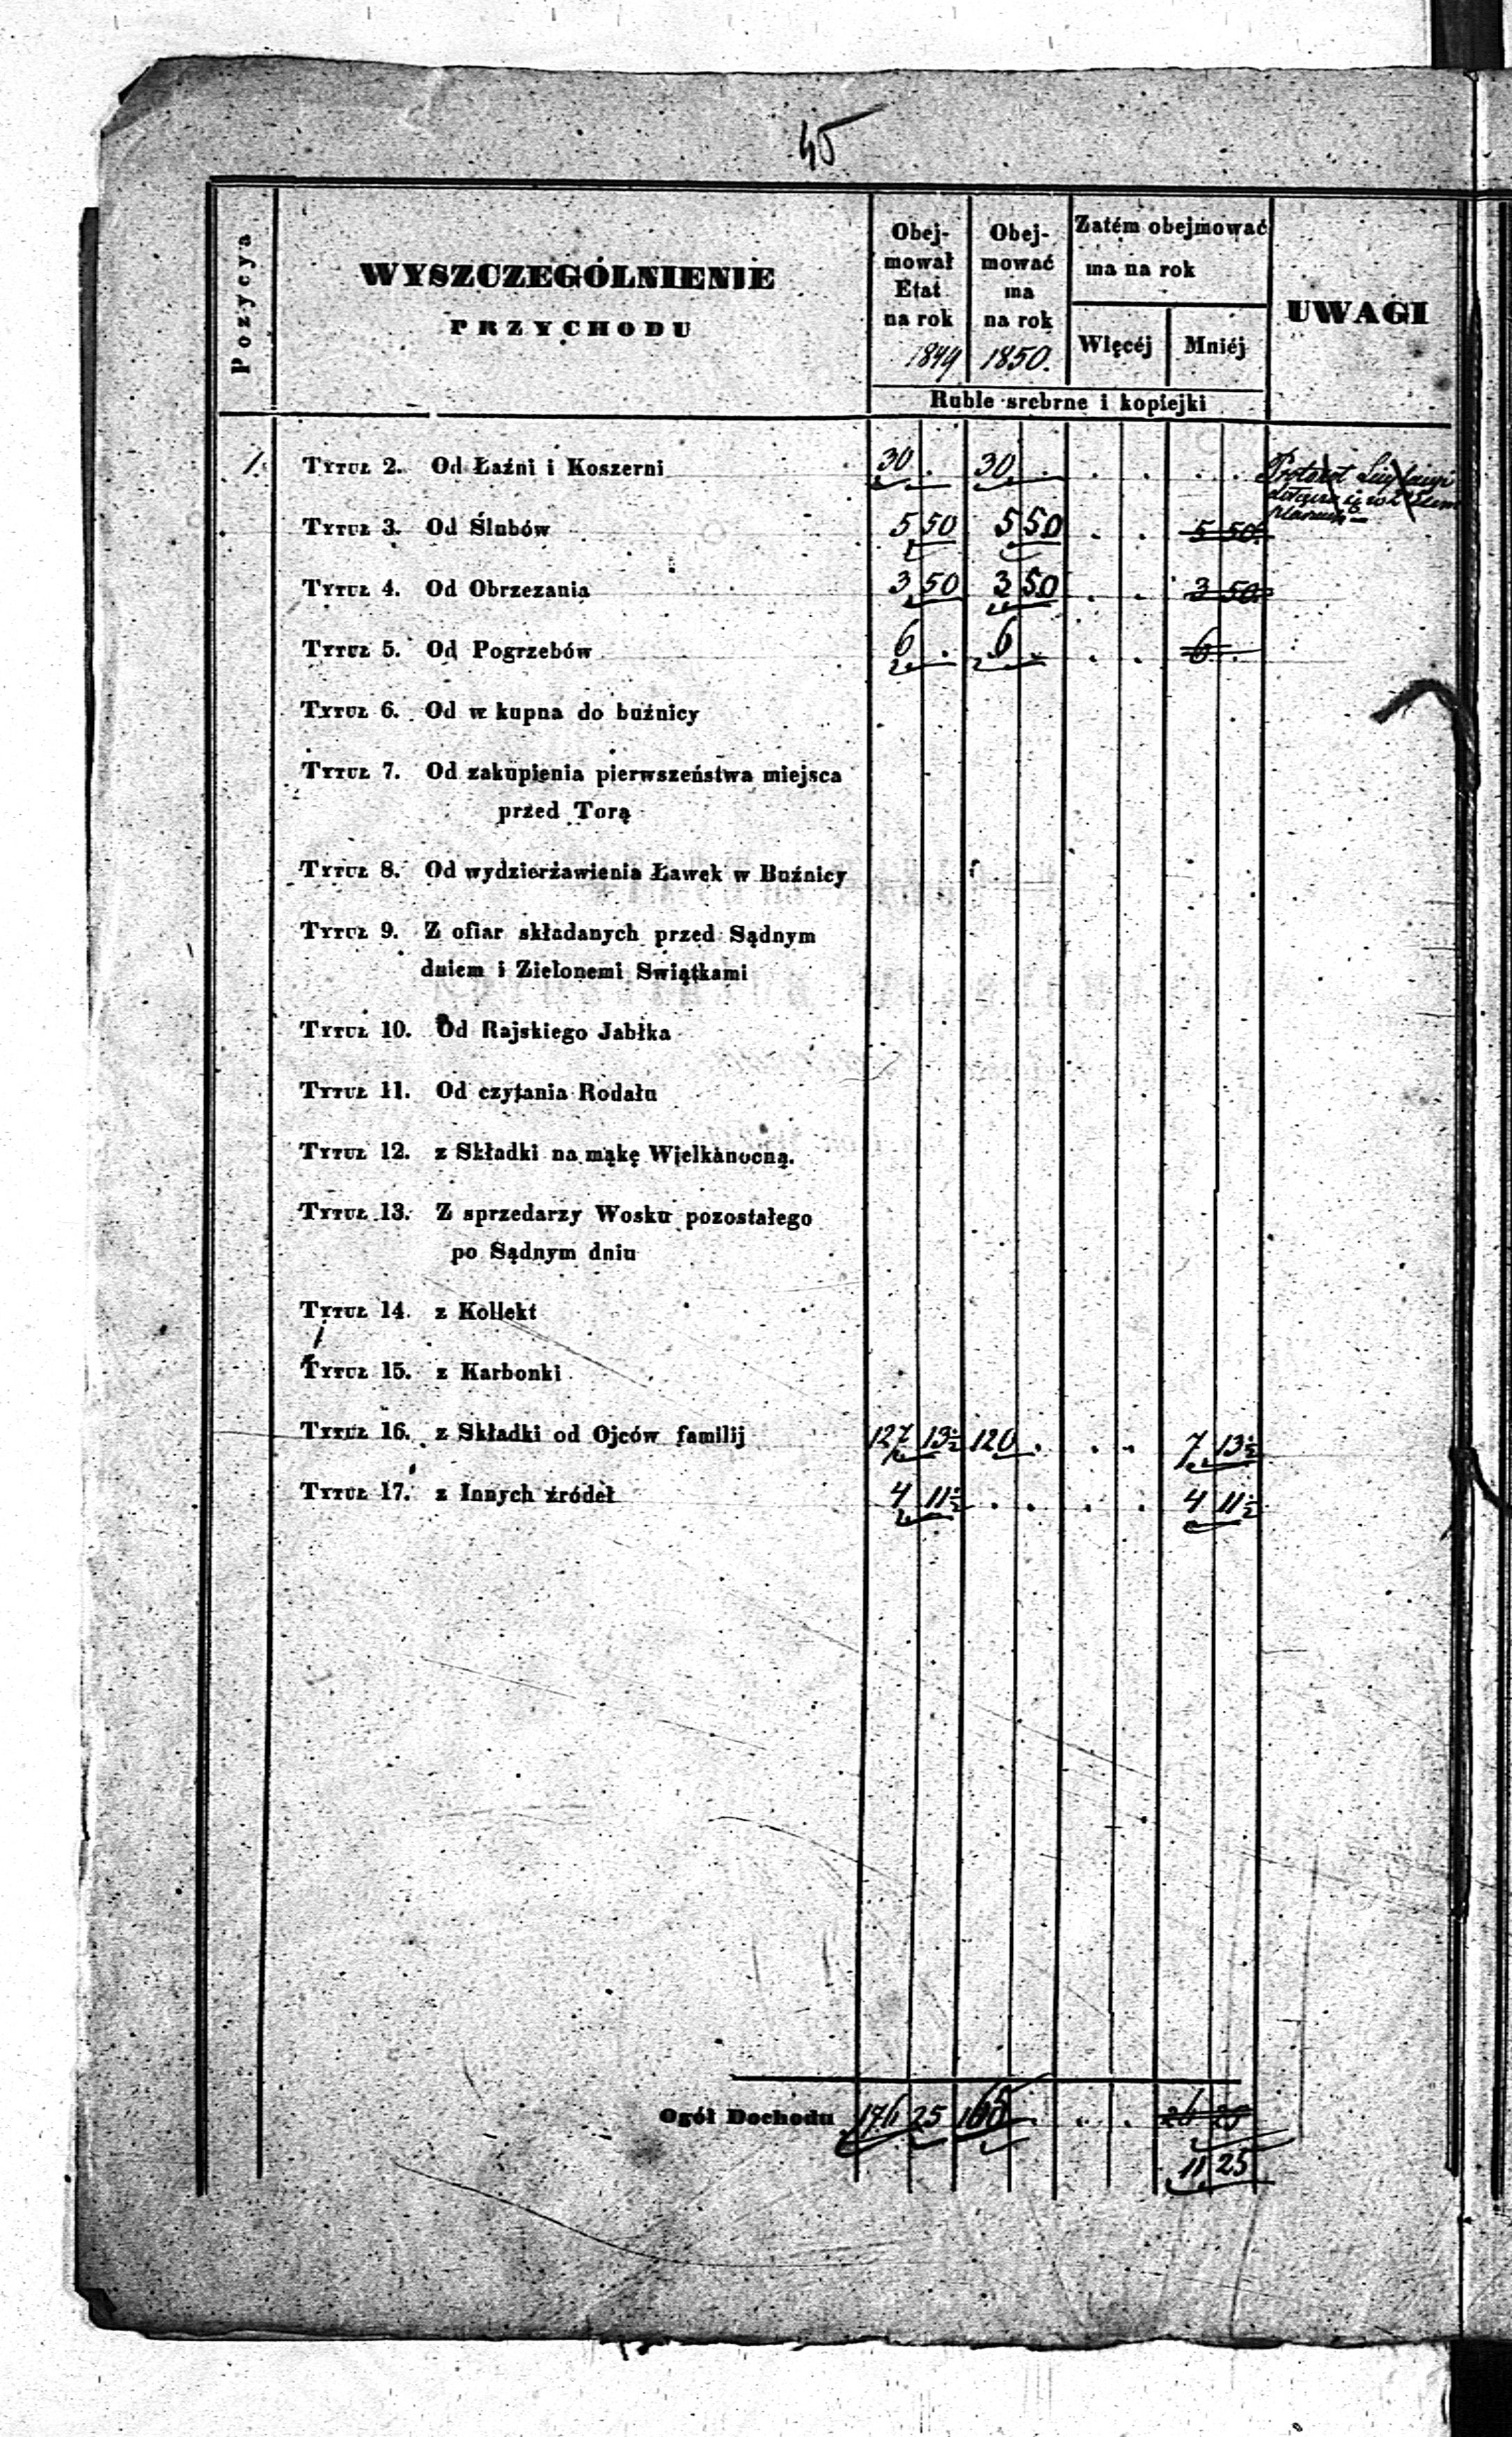 45
Pozycya
WYSZCZEGÓLNIENIE
PRZYCHODU
Obej-
mował
Etat
na rok
1849
Obej-
mować
ma
na rok
1850.
Zatém obejmować
ma na rok
Więcéj
Mniéj
UWAGI
Ruble srebrne i kopiejki
1. Tytuł 2. Od Łaźni i Koszerni 30 . 30 . . . . .
Protokół
Tytuł 3. Od Ślubów 5 50 5 50 . . 5 50.
Tytuł 4. Od Obrzezania 3 50 3 50 . . 3 50.
Tytuł 5. Od Pogrzebów 6 . 6 . . . 6 .
Tytuł 6. Od w kupna do buźnicy
Tytuł 7. Od zakupienia pierwszeństwa miejsca
przed Torą
Tytuł 8. Od wydzierżawienia Ławek w Buźnicy
Tytuł 9. Z ofiar składanych przed Sądnym
dniem i Zielonemi Swiątkami
Tytuł 10. Od Rajskiego Jabłka
Tytuł 11. Od czytania Rodału
Tytuł 12. z Składki na mąkę Wielkanocną.
Tytuł 13. Z sprzedarzy Wosku pozostałego
po Sądnym dniu
Tytuł 14. z Kollekt
Tytuł 15. z Karbonki
Tytuł 16. z Składki od Ojców familij 127 13½ 120 . . . 7 13½
Tytuł 17. z Innych źródeł 4 11½ . . . . 4 11½
Ogół Dochodu 176 25 165 . . . 26 25
11 25